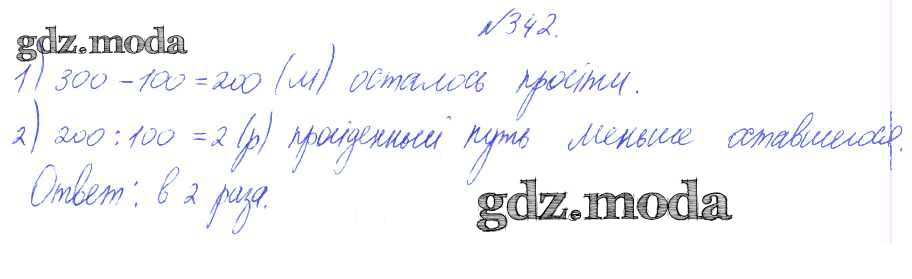 №342.
gdz.moda
1) 300 - 100 = 200 (м) осталось пройти.
2) 200 : 100 = 2 (р) пройденный путь меньше оставшегося.
Ответ: в 2 раза.
gdz.moda